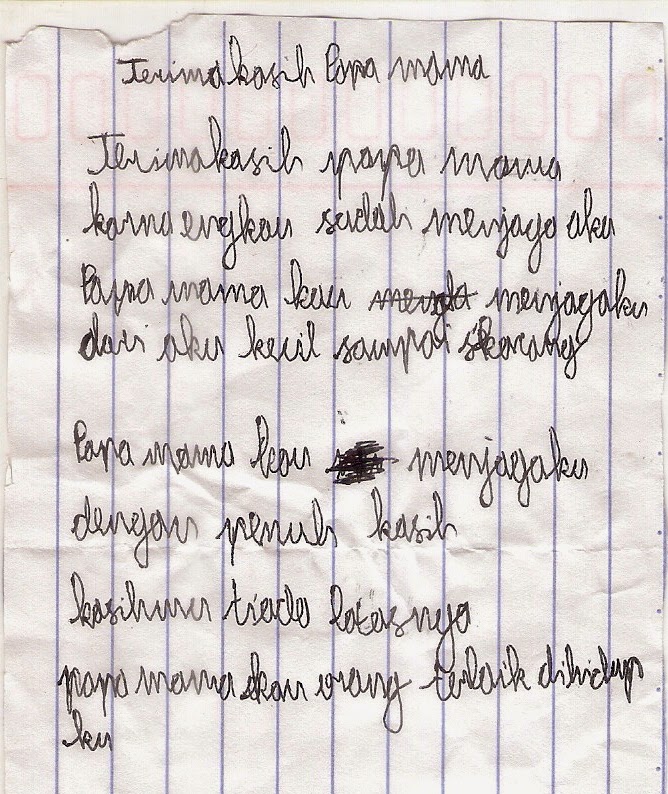 Terimakasih Papa mama
Terimakasih papa mama
karna engkau sudah menjaga aku
Papa mama kau menjagaku
dari aku kecil sampai skarang
Papa mama kau menjagaku
dengan penuh kasih
kasihmu tiada batasnya
papa mama kau orang terbaik dihidup
ku